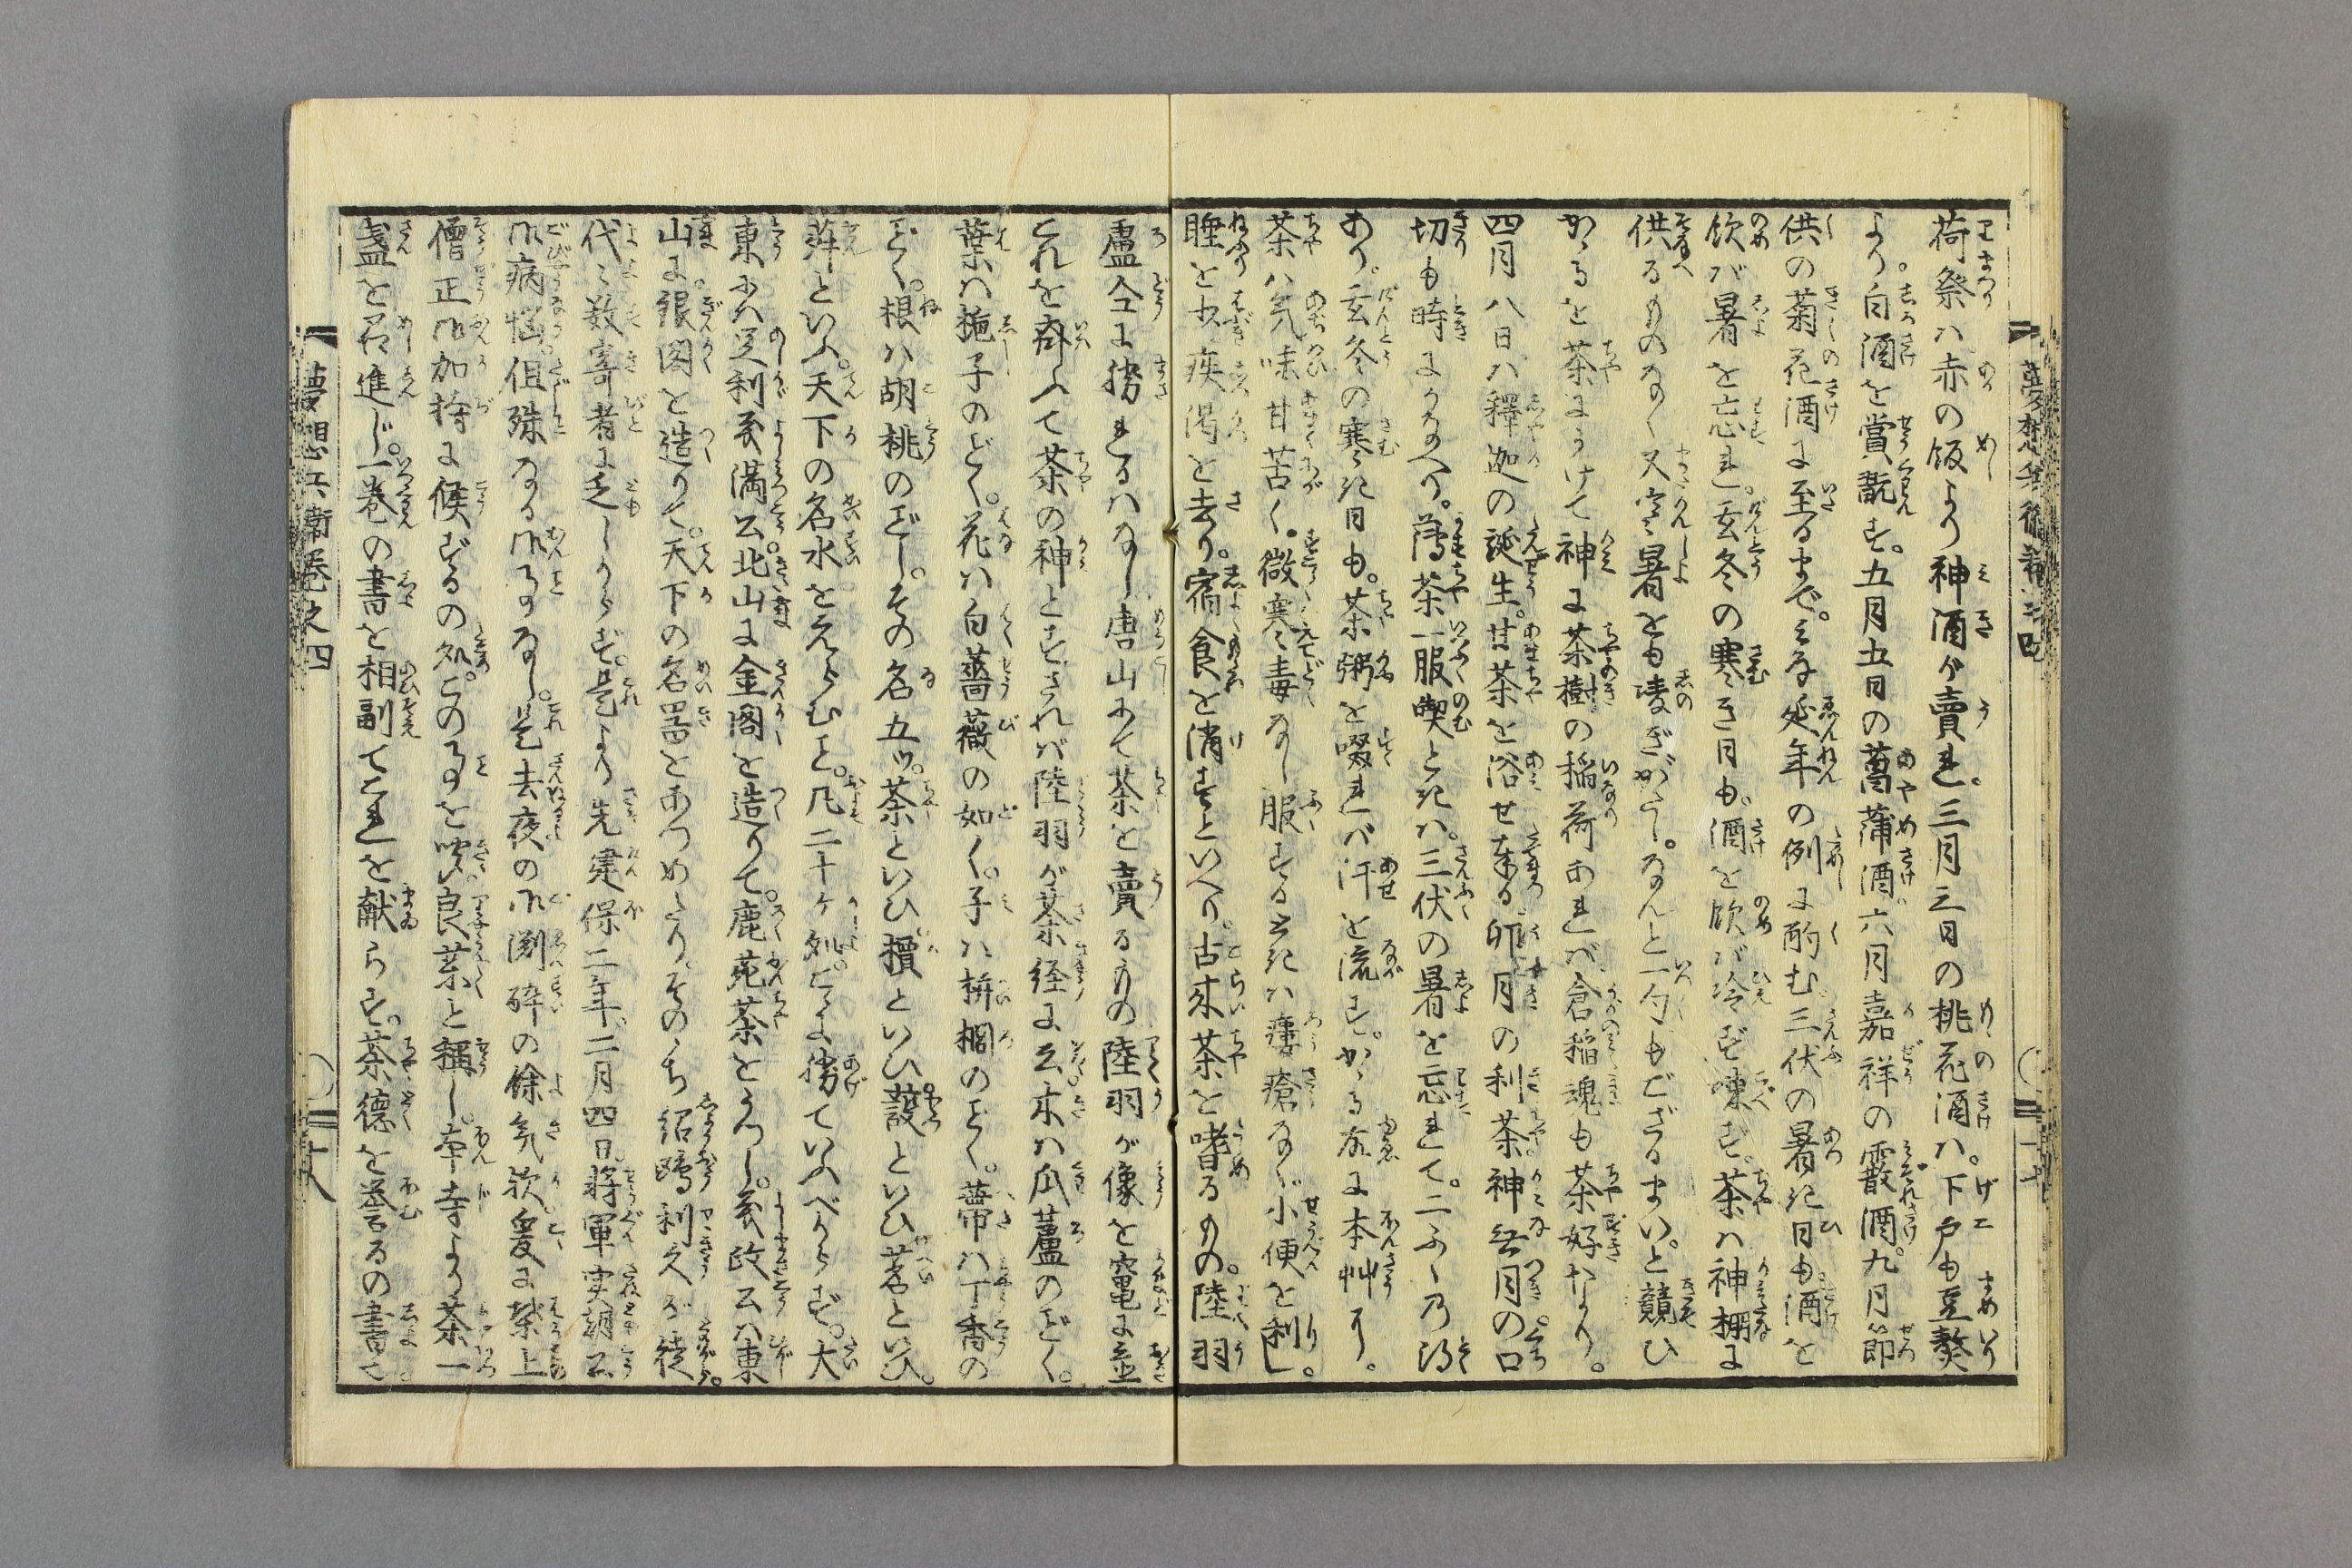 荷祭ハ赤の飯より神酒が賣れ。三月三日の桃花酒ハ。下戸も豆熬
より。白酒を賞翫す。五月五日の菖蒲酒。六月嘉祥の霰酒。九月節
供の菊花酒に至るまで。みな延年の例に酌む。三伏の暑き日も酒を
飲バ暑を忘れ。玄冬の寒き日も。酒を飲バ冷ず凍ず。茶ハ神棚に
供るものなく又寒暑をも凌ぎがたし。なんと一句もござるまい。と競ひ
かゝるを茶にうけて神に茶樹の稲荷あれバ。倉稲魂も茶好なり。
四月八日ハ釋迦の誕生。甘茶を浴せ奉る卯月の利茶。神無月の口
切も時にかなへり。薄茶一服喫ときハ。三伏の暑を忘れて。二ふく乃得
あり。玄冬の寒き日も。茶粥を啜れバ汗を流す。かゝる故に本艸に。
茶ハ気味甘苦く。微寒毒なし服するときハ瘻瘡なく小便を利し。
睡を少疾渇を去り。宿食を消すといへり。古来茶を嗜るもの。陸羽
盧仝に勝れるハなし唐山にて茶を賣るもの陸羽が像を竃に並
これを斎ふて茶の神とすされバ陸羽が茶経に云木ハ瓜蘆のごとく。
葉ハ梔子のごとく。花ハ白薔薇の如く。子ハ栟櫚のごとく。蒂ハ丁香の
ごとく。根ハ胡桃のごとし。その名五ツ。茶といひ檟といひ蔎といひ茗といひ。
荈といふ。天下の名水をえらむこと。凡二十ケ処。こゝに勝ていふべからず。大
東にハ足利義満公。北山に金閣を造りて。鹿苑茶とうつし。義政公ハ東
山に。銀閣を造りて。天下の名器をあつめたり。そのゝち紹鴎利久が徒。
代々数寄者に乏しからず。是より先建保二年。二月四日。将軍実朝公
御病悩但殊なる御事なし。是去夜の御淵酔の餘気歟爰に葉上
僧正御加持に候ずるの処。この事を聞良薬と稱し。本寺より茶一
盞を召進じ。一巻の書を相副てこれを献らる。茶徳を誉るの書と
夢想兵衛巻之四